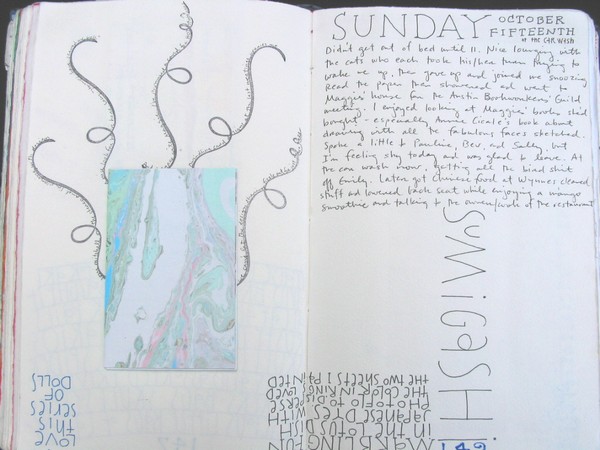 SUNDAY OCTOBER
FIFTEENTH
at the CAR WASH
Didn't get out of bed until 11. Nice lounging with
the cats who each took his/her turn trying to
wake me up, then gave up and joined me snoozing.
Read the paper then showered and went to
Maggie's house for the Austin Bookworkers' Guild
meeting. I enjoyed looking at Maggie's books she'd
bought - especially Annie Cicale's book about
drawing with all the fabulous faces sketched.
Spoke a little to Pauline, Bev, and Sally, but
I'm feeling shy today and was glad to leave. At
the car wash now, getting all the bird shit
off Emily. Later got Chinese food at Wynnes cleaned
stuff and lowered back seat while enjoying a mango
smoothie and talking to the owner/cook of the restaurant
SUMIGASH
149
MARBLING FUN
IN THE LOTUS DISH
JAPANESE DYES WITH
PHOTO FLO TO DISPERSE
THE COLOR IN RINGS. LOVED
THE TWO SHEETS I PAINTED
LOVE
THIS
SERIES
OF
DOLLS